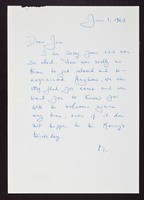 June 1, 1962
Dear Jim
I am sorry your visit was
so short. There was really no
time to get relaxed and
Anyhow, we are
very glad you came and we
want you to know you
will be welcome again
any time, even if it does
not happen to be
birthday.